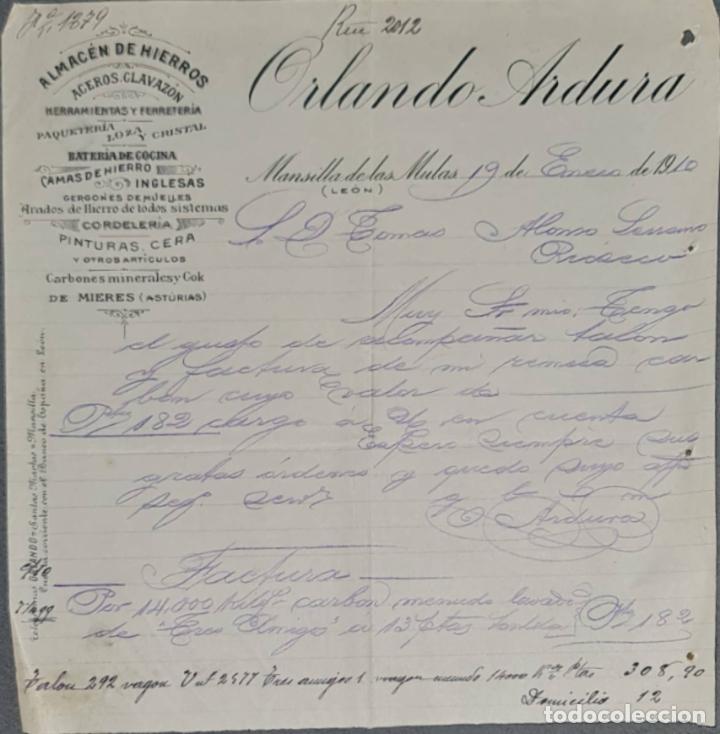 1379
Rte 2012
ALMACÉN DE HIERROS
ACEROS, CLAVAZÓN
HERRAMIENTAS Y FERRETERÍA
PAQUETERÍA LOZA Y CRISTAL
BATERÍA DE COCINA
CAMAS DE HIERRO
INGLESAS
GERGONES DE MUELLES
Arados de Hierro de todos sistemas
CORDELERÍA
PINTURAS, CERA
Y OTROS ARTÍCULOS
Carbones minerales y Cok
DE MIERES (ASTÚRIAS)
Orlando Ardura
Mansilla de las Mulas 19 de Enero de 1910
(LEÓN)
S. D. Tomas Alonso Serrano
Rioseco
Muy Sr mio: Tengo
el gusto de acompañar talon
y factura de mi remesa car
bon cuyo valor de
Ptas 182 cargo á V en cuenta
Espero siempre sus
gratas órdenes y quedo suyo affo
seg. servr
q b s m
O Ardura
Factura
Por 14.000 Kilos carbon menudo lavado
de "Tres Amigos" a 13 ptas tonelada Ptas 182
Talon 292 vagon 2977 Tres amigos 1 vagon menudo 14000 Ks Ptas 308,90
Domicilio 12
ORLANDO = Santas Martas = Mansilla.
Cuenta corriente con el Banco de España en León.